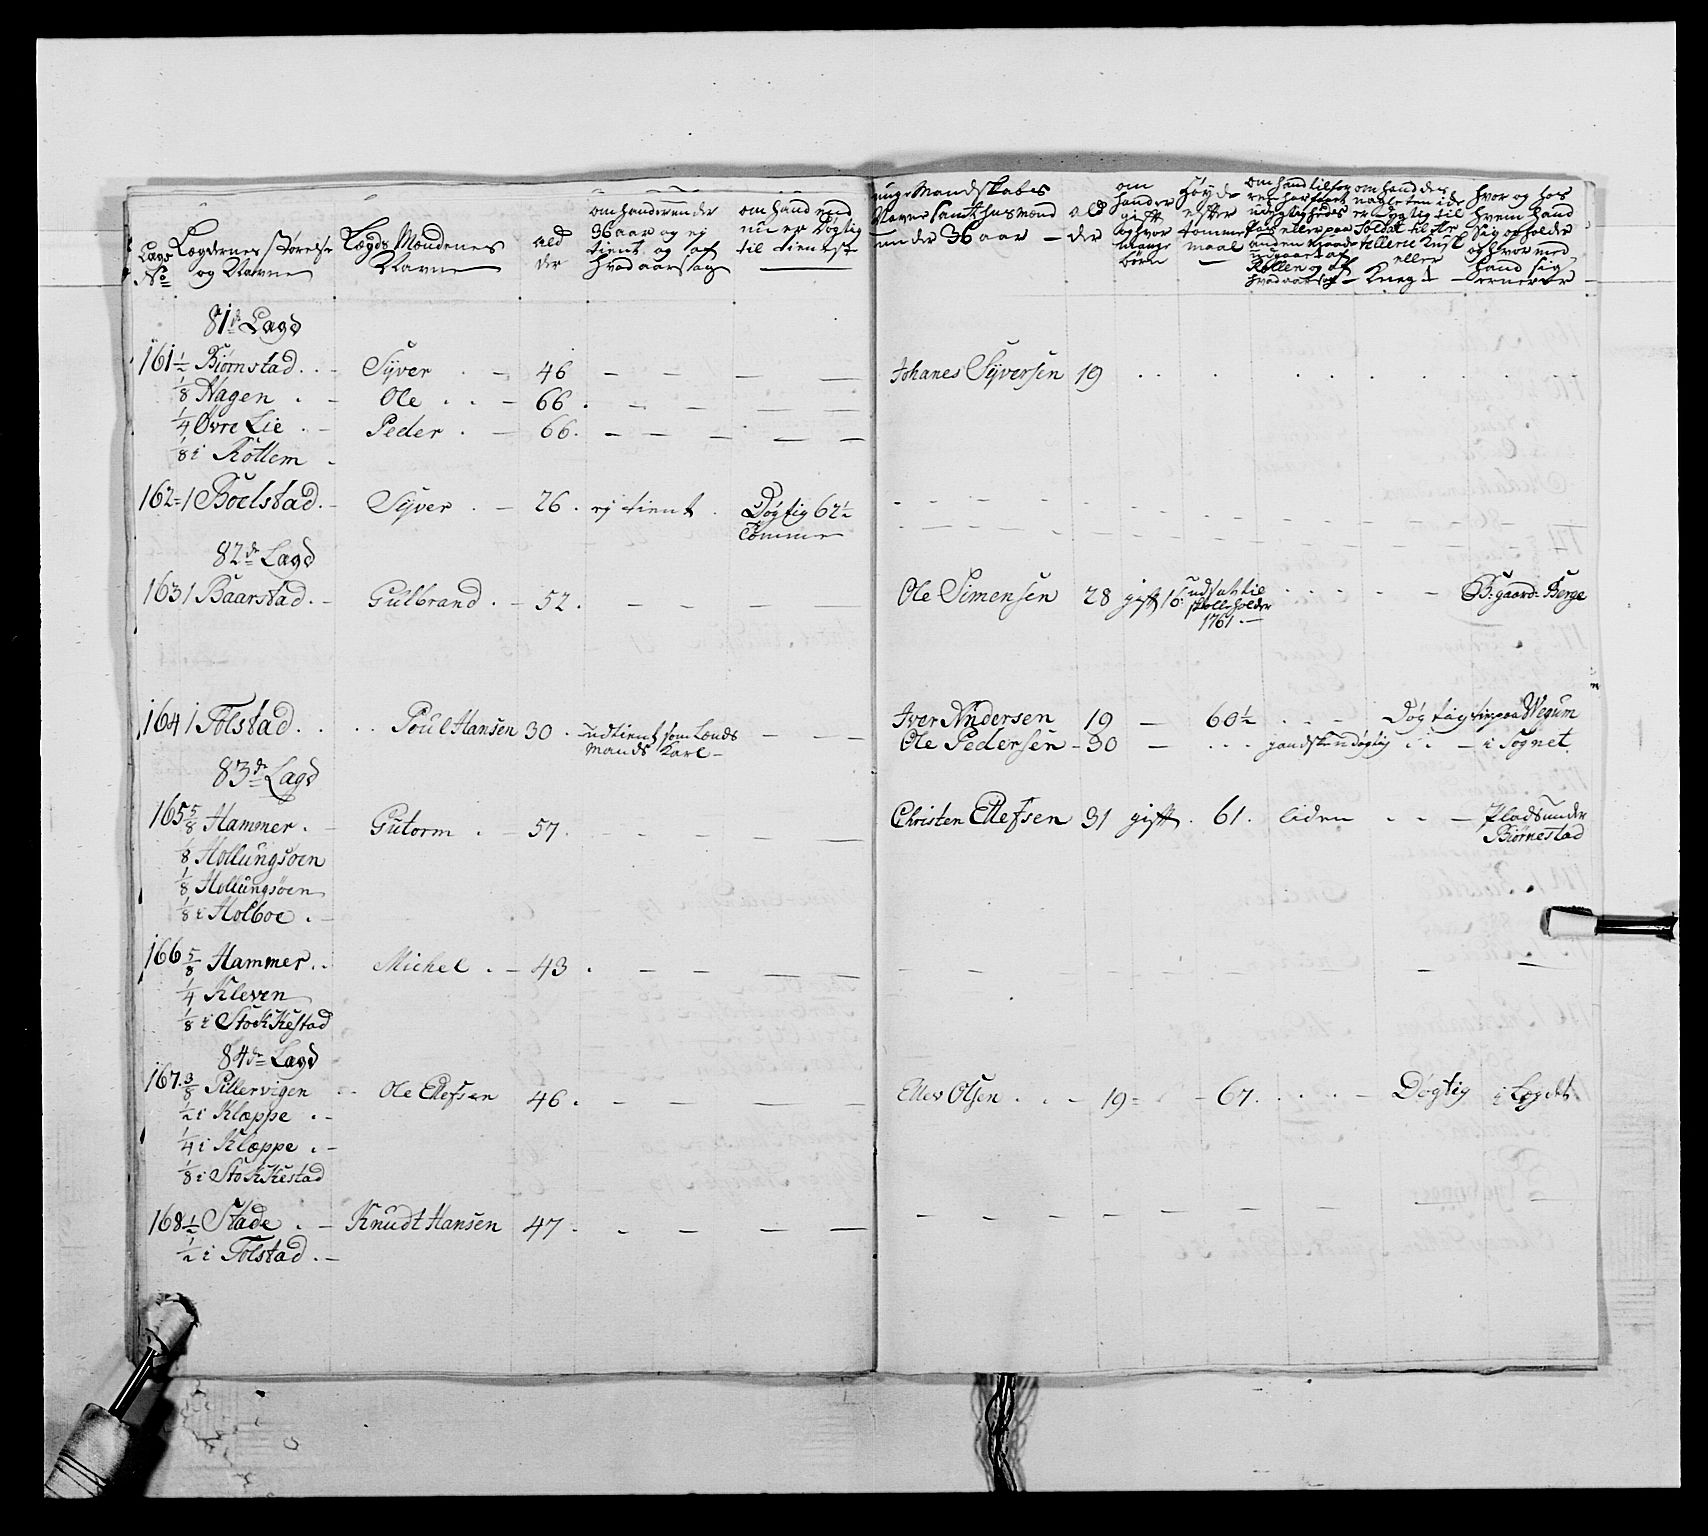 Lægd No
Lægdernes størrelse og Navne
Lægds Mændenes Navne
alder
om hand er under 36 aar og ej tient og af hvad aarsag
om hand end nu er Døgtig til tieneste
unge Mandskabes Navne samt husmænd under 36 aar
alder
om hand er gift og hvor mange børn
Høyde efter tomme maal
hvor og hos hvem hand sig opholder og hvor med hand sig ernerer
81de Lægd
161 1/2 Biørnstad . - Syver . - 46 - - - - Johanes Syversen 19
1/8 Hagen . - Ole . . - 66 . - - - -
1/4 Øvre Lie . - Peder . - 66 . - - - -
1/8 i Kottem -
162 = 1 Boelstad . - Syver . - 26 . ej tient . Døgtig 62 1/2 Tomme
82de Lægd
163 1 Baarstad . - Gulbrand . - 52 . - - - - Ole Simensen 28 gift 16: udsatt til 1761 . - B: gaard: Berge
164 1 Tolstad . . . . Poul Hansen 30 . udtient som Lænds Mands Karl - - - Iver Andersen 19 - 60 1/2 . - - Døgtig Wegum
Ole Pedersen - 30 - . . . gandske udøgtig . . - i Sognet
83de Lægd
165 5/8 Hammer . - Gutorm . - 57 . - - - - Christen Ellefsen 31 gift . 61 . liden . . - Plads under Biørnestad
1/8 Hollungsøen
1/8 Hollungsøen
1/8 i Holboe . -
166 5/8 Hammer . . Michel . - 43 . - - - -
1/4 Kleven
1/8 i StokKestad
84de Lægd
167 . 3/8 Pillervigen . . Ole Ellefsen 46 . - - - - Ellev Olsen . . - 19 = 67 . . . - Døgtig i Lægdet
1/2 i Klæppe . -
1/4 i Klæppe . -
1/8 i StokKestad
168 1/2 Stade . - Knudt Hansen 47 . - - - -
1/2 i Tolstad . -